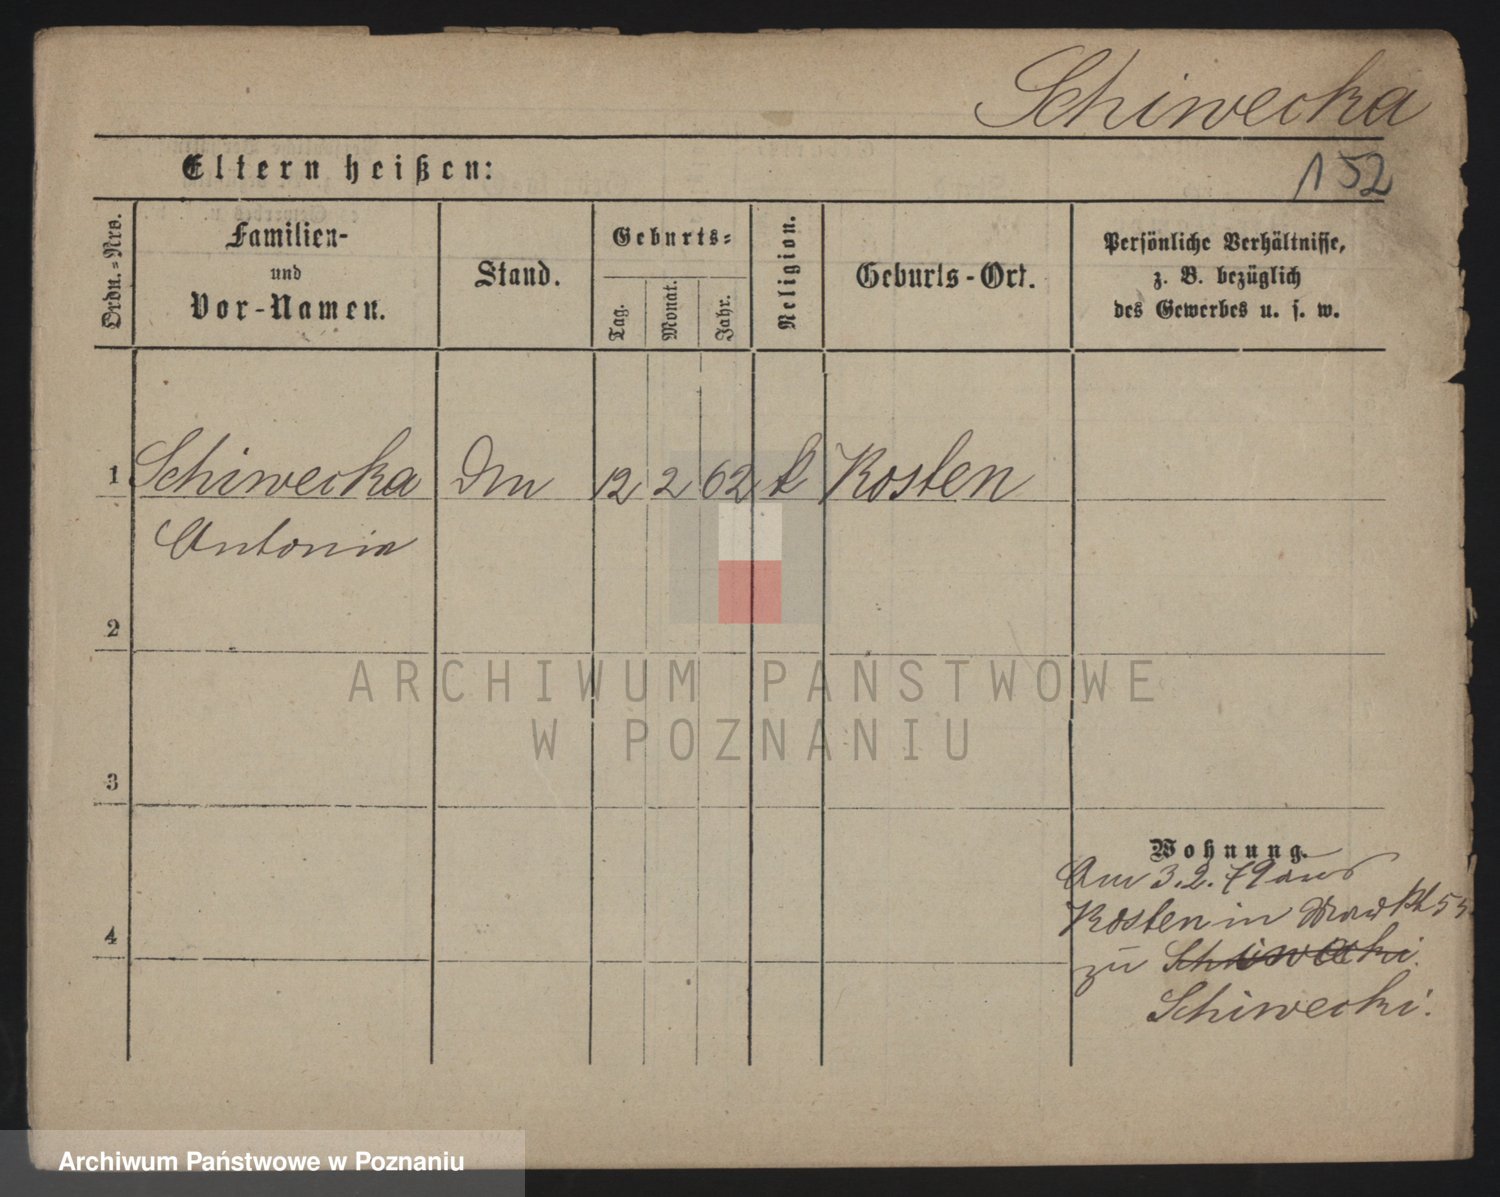 Schiwecka
152
Eltern heißen:
Ordn.-Nrs.
Familien-
und
Vor-Namen.
Stand.
Geburts-
Tag.
Monat.
Jahr.
Religion.
Geburts-Ort.
Persönliche Verhältnisse,
z. B. bezüglich
des Gewerbes u. s. w.
1 Schiwecka 12 2 62 k Kosten
Antonie
2
ARCHIWUM PAŃSTWOWE
W POZNANIU
3
Wohnung.
Am 3.2.79 aus
Kosten in Markt 53
4
zu Schiwecki.
Schiwecki.
Archiwum Państwowe w Poznaniu